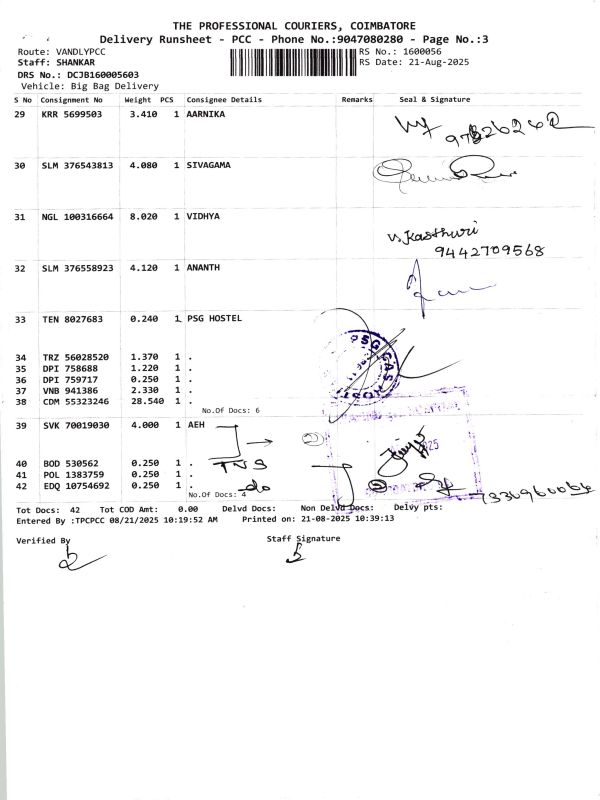 THE PROFESSIONAL COURIERS, COIMBATORE
Delivery Runsheet - PCC - Phone No.:9047080280 - Page No.:3
Route: VANDLYPCC RS No.: 1600056
Staff: SHANKAR RS Date: 21-Aug-2025
DRS No.: DCJB160005603
Vehicle: Big Bag Delivery
S No Consignment No Weight PCS Consignee Details Remarks Seal & Signature
29 KRR 5699503 3.410 1 AARNIKA
30 SLM 376543813 4.080 1 SIVAGAMA
31 NGL 100316664 8.020 1 VIDHYA
V. Kasthuri
9442709568
32 SLM 376558923 4.120 1 ANANTH
33 TEN 8027683 0.240 1 PSG HOSTEL
34 TRZ 56028520 1.370 1 .
35 DPI 758688 1.220 1 .
36 DPI 759717 0.250 1 .
37 VNB 941386 2.330 1 .
38 CDM 55323246 28.540 1 .
No.Of Docs: 6
39 SVK 70019030 4.000 1 AEH
40 BOD 530562 0.250 1 .
41 POL 1383759 0.250 1 .
42 EDQ 10754692 0.250 1 . do
No.Of Docs: 4
Tot Docs: 42 Tot COD Amt: 0.00 Delvd Docs: Non Delvd Docs: Delvy pts:
Entered By :TPCPCC 08/21/2025 10:19:52 AM Printed on: 21-08-2025 10:39:13
Verified By Staff Signature